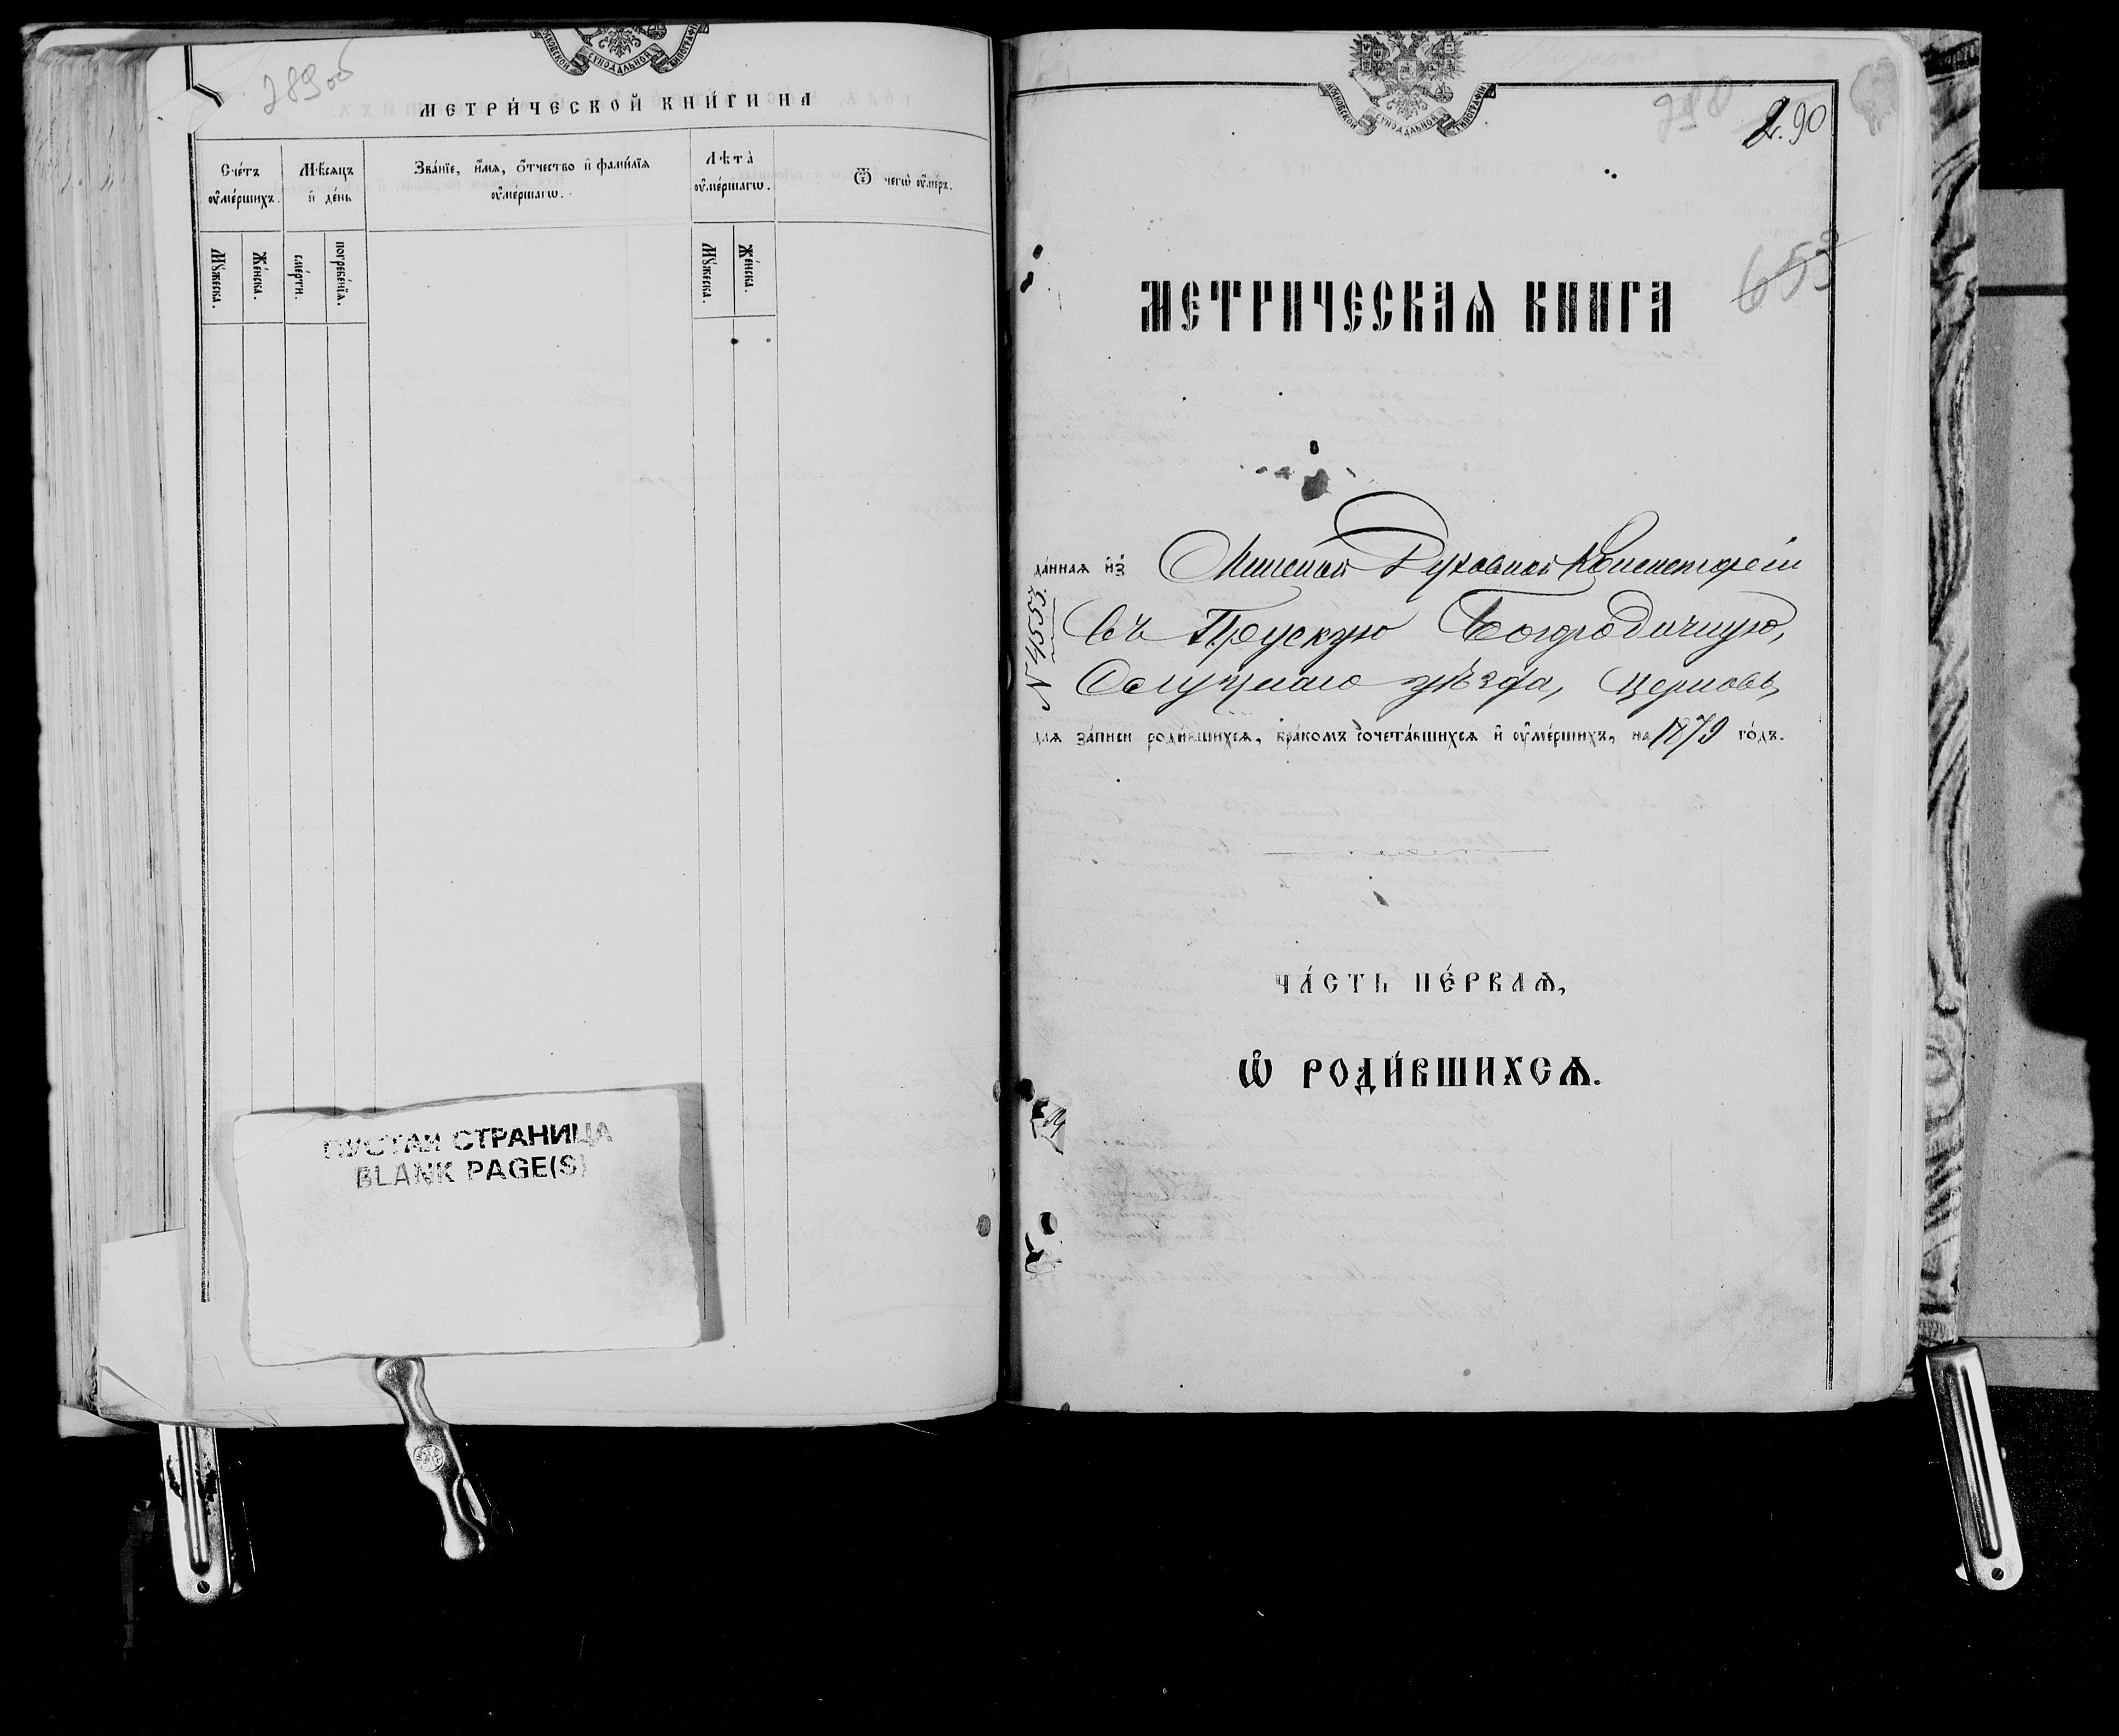 289 об
МЕТРИ́ЧЕСКОЙ КНИ́ГИ НА
Сче́тъ ᲂу҆ме́ршихъ.
Мѣ́сяцъ и҆ де́нь
Зва́нїе, и҆́мѧ, ѻ҆́тчество и҆ фами́лїѧ ᲂу҆ме́ршагѡ.
Лѣ́та ᲂу҆ме́ршагѡ.
Ѿ чегѡ̀ ᲂу҆́меръ.
Мꙋ́жеска.
Же́нска.
сме́рти.
погребе́нїѧ.
Мꙋ́жеска.
Же́нска.
ПУСТАЯ СТРАНИЦА
BLANK PAGE(S)
МОСКОВСКОЙ СѴНОДАЛЬНОЙ ТИПОГРАФІИ
290
290
653
МЕТРИЧЕСКАѦ КНИГА
да́нная и҆з̾ Минской Духовной Консисторіи
въ Прускую Богородичную,
Слуцкаго уѣзда, церковь
№ 4553.
для за́писи роди́вшихся, бра́комъ сочета́вшихся и҆ ᲂу҆ме́ршихъ, на 1879 го́дъ.
ЧА́СТЬ ПЕ́РВАѦ,
Ѡ҆ РОДИ́ВШИХСѦ.